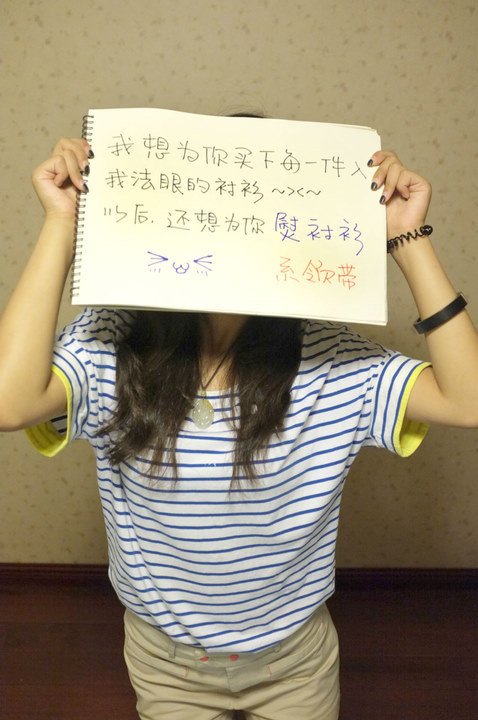 我想为你买下每一件入
我法眼的衬衫~><~
以后.还想为你熨衬衫
系领带